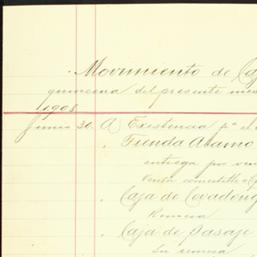 Movimiento de Ca
quincena del presente mes
1908
Junio 30. A Existencia pa el
Tienda Alamo
entrega por
Caja de Covadong
Remesa
Caja de Pasaje
Su remesa